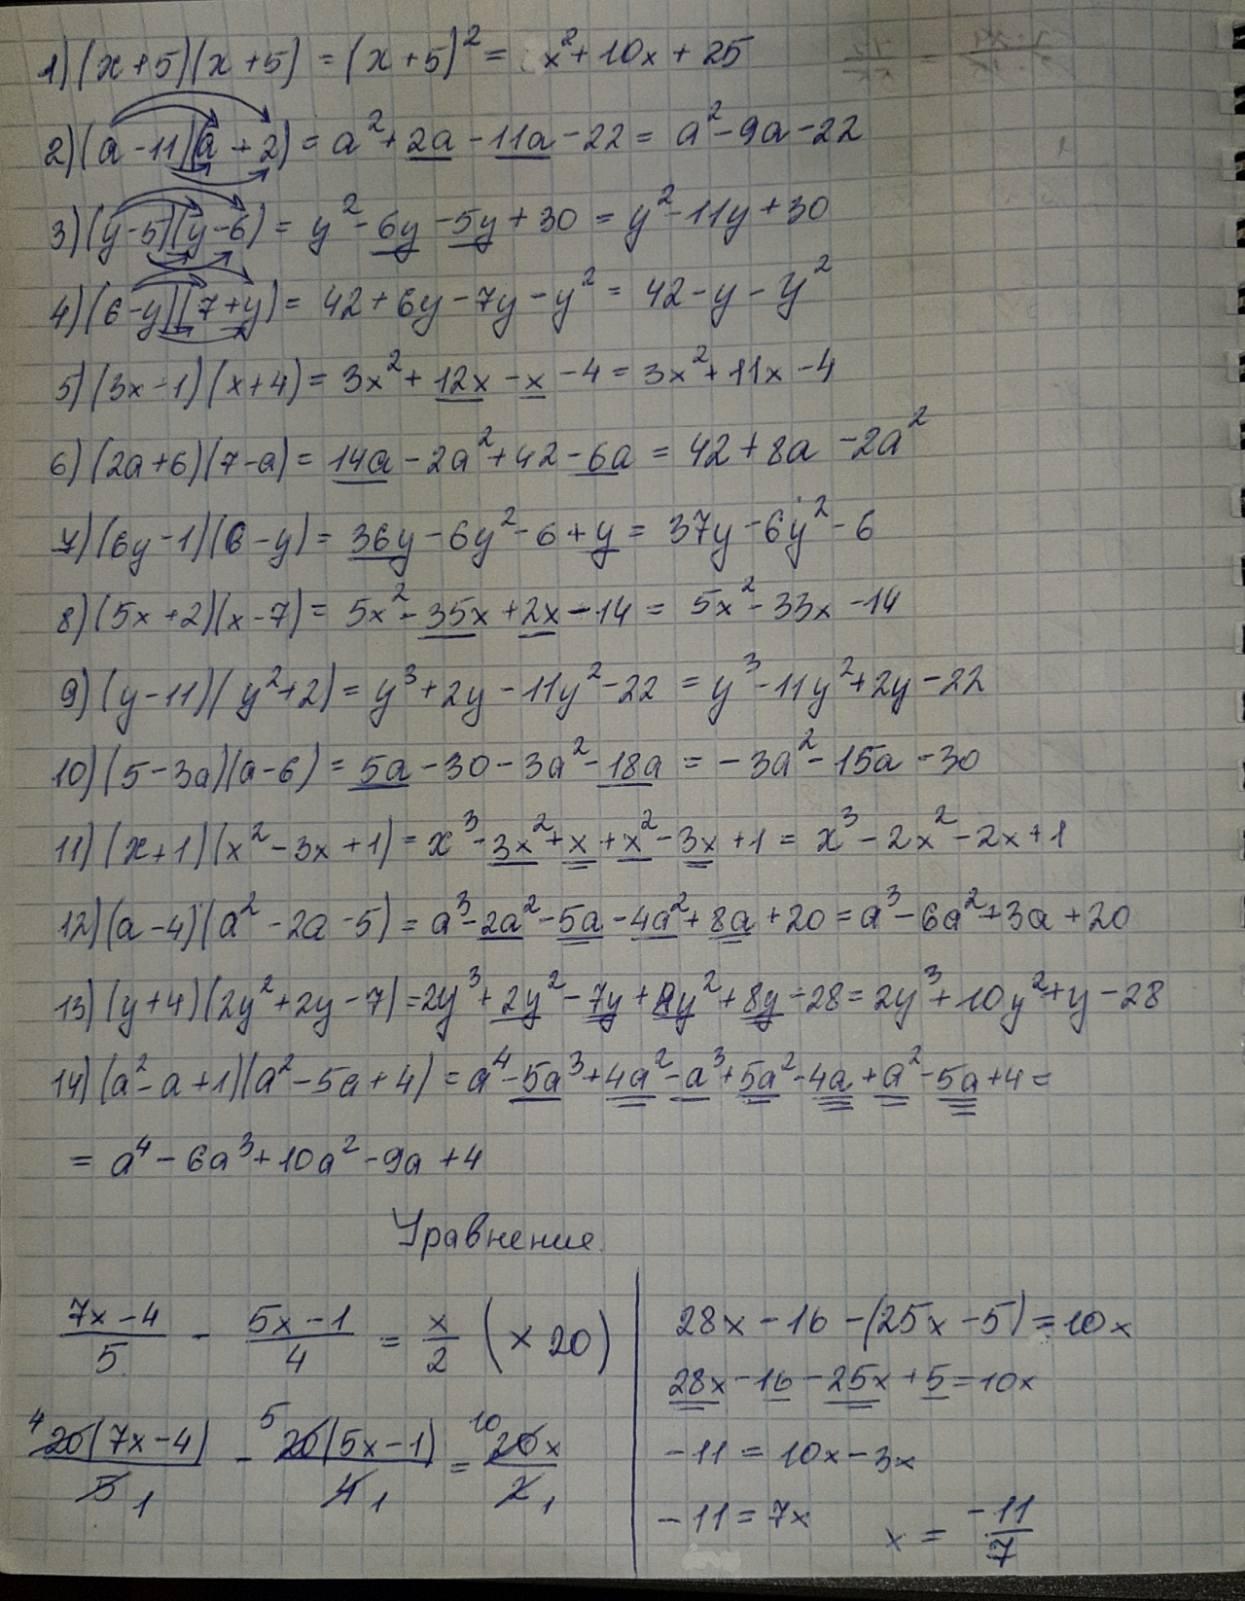 1) (x+5)(x+5) = (x+5)² = x² + 10x + 25
2) (a-11)(a+2) = a² + 2a - 11a - 22 = a² - 9a - 22
3) (y-5)(y-6) = y² - 6y - 5y + 30 = y² - 11y + 30
4) (6-y)(7+y) = 42 + 6y - 7y - y² = 42 - y - y²
5) (3x-1)(x+4) = 3x² + 12x - x - 4 = 3x² + 11x - 4
6) (2a+6)(7-a) = 14a - 2a² + 42 - 6a = 42 + 8a - 2a²
7) (6y-1)(6-y) = 36y - 6y² - 6 + y = 37y - 6y² - 6
8) (5x+2)(x-7) = 5x² - 35x + 2x - 14 = 5x² - 33x - 14
9) (y-11)(y²+2) = y³ + 2y - 11y² - 22 = y³ - 11y² + 2y - 22
10) (5-3a)(a-6) = 5a - 30 - 3a² - 18a = -3a² - 15a - 30
11) (x+1)(x²-3x+1) = x³ - 3x² + x + x² - 3x + 1 = x³ - 2x² - 2x + 1
12) (a-4)(a²-2a-5) = a³ - 2a² - 5a - 4a² + 8a + 20 = a³ - 6a² + 3a + 20
13) (y+4)(2y²+2y-7) = 2y³ + 2y² - 7y + 8y² + 8y - 28 = 2y³ + 10y² + y - 28
14) (a²-a+1)(a²-5a+4) = a⁴ - 5a³ + 4a² - a³ + 5a² - 4a + a² - 5a + 4 =
= a⁴ - 6a³ + 10a² - 9a + 4
Уравнение.
(7x-4)/5 - (5x-1)/4 = x/2 (×20)
4 20(7x-4)/5 1 - 5 20(5x-1)/4 1 = 10 20x/2 1
28x - 16 - (25x - 5) = 10x
28x - 16 - 25x + 5 = 10x
-11 = 10x - 3x
-11 = 7x x = -11/7